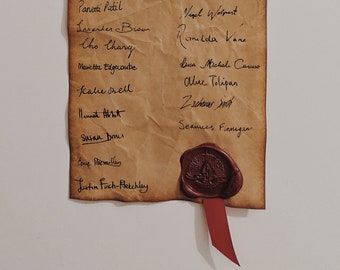 Parvati Patil
Lavender Brown
Cho Chang
Marietta Edgecombe
Katie Bell
Hannah Abbott
Susan Bones
Ernie Macmillan
Justin Finch-Fletchley
Nigel Wolpert
Romilda Vane
Luca Michele Caruso
Zacharias Smith
Seamus Finnigan